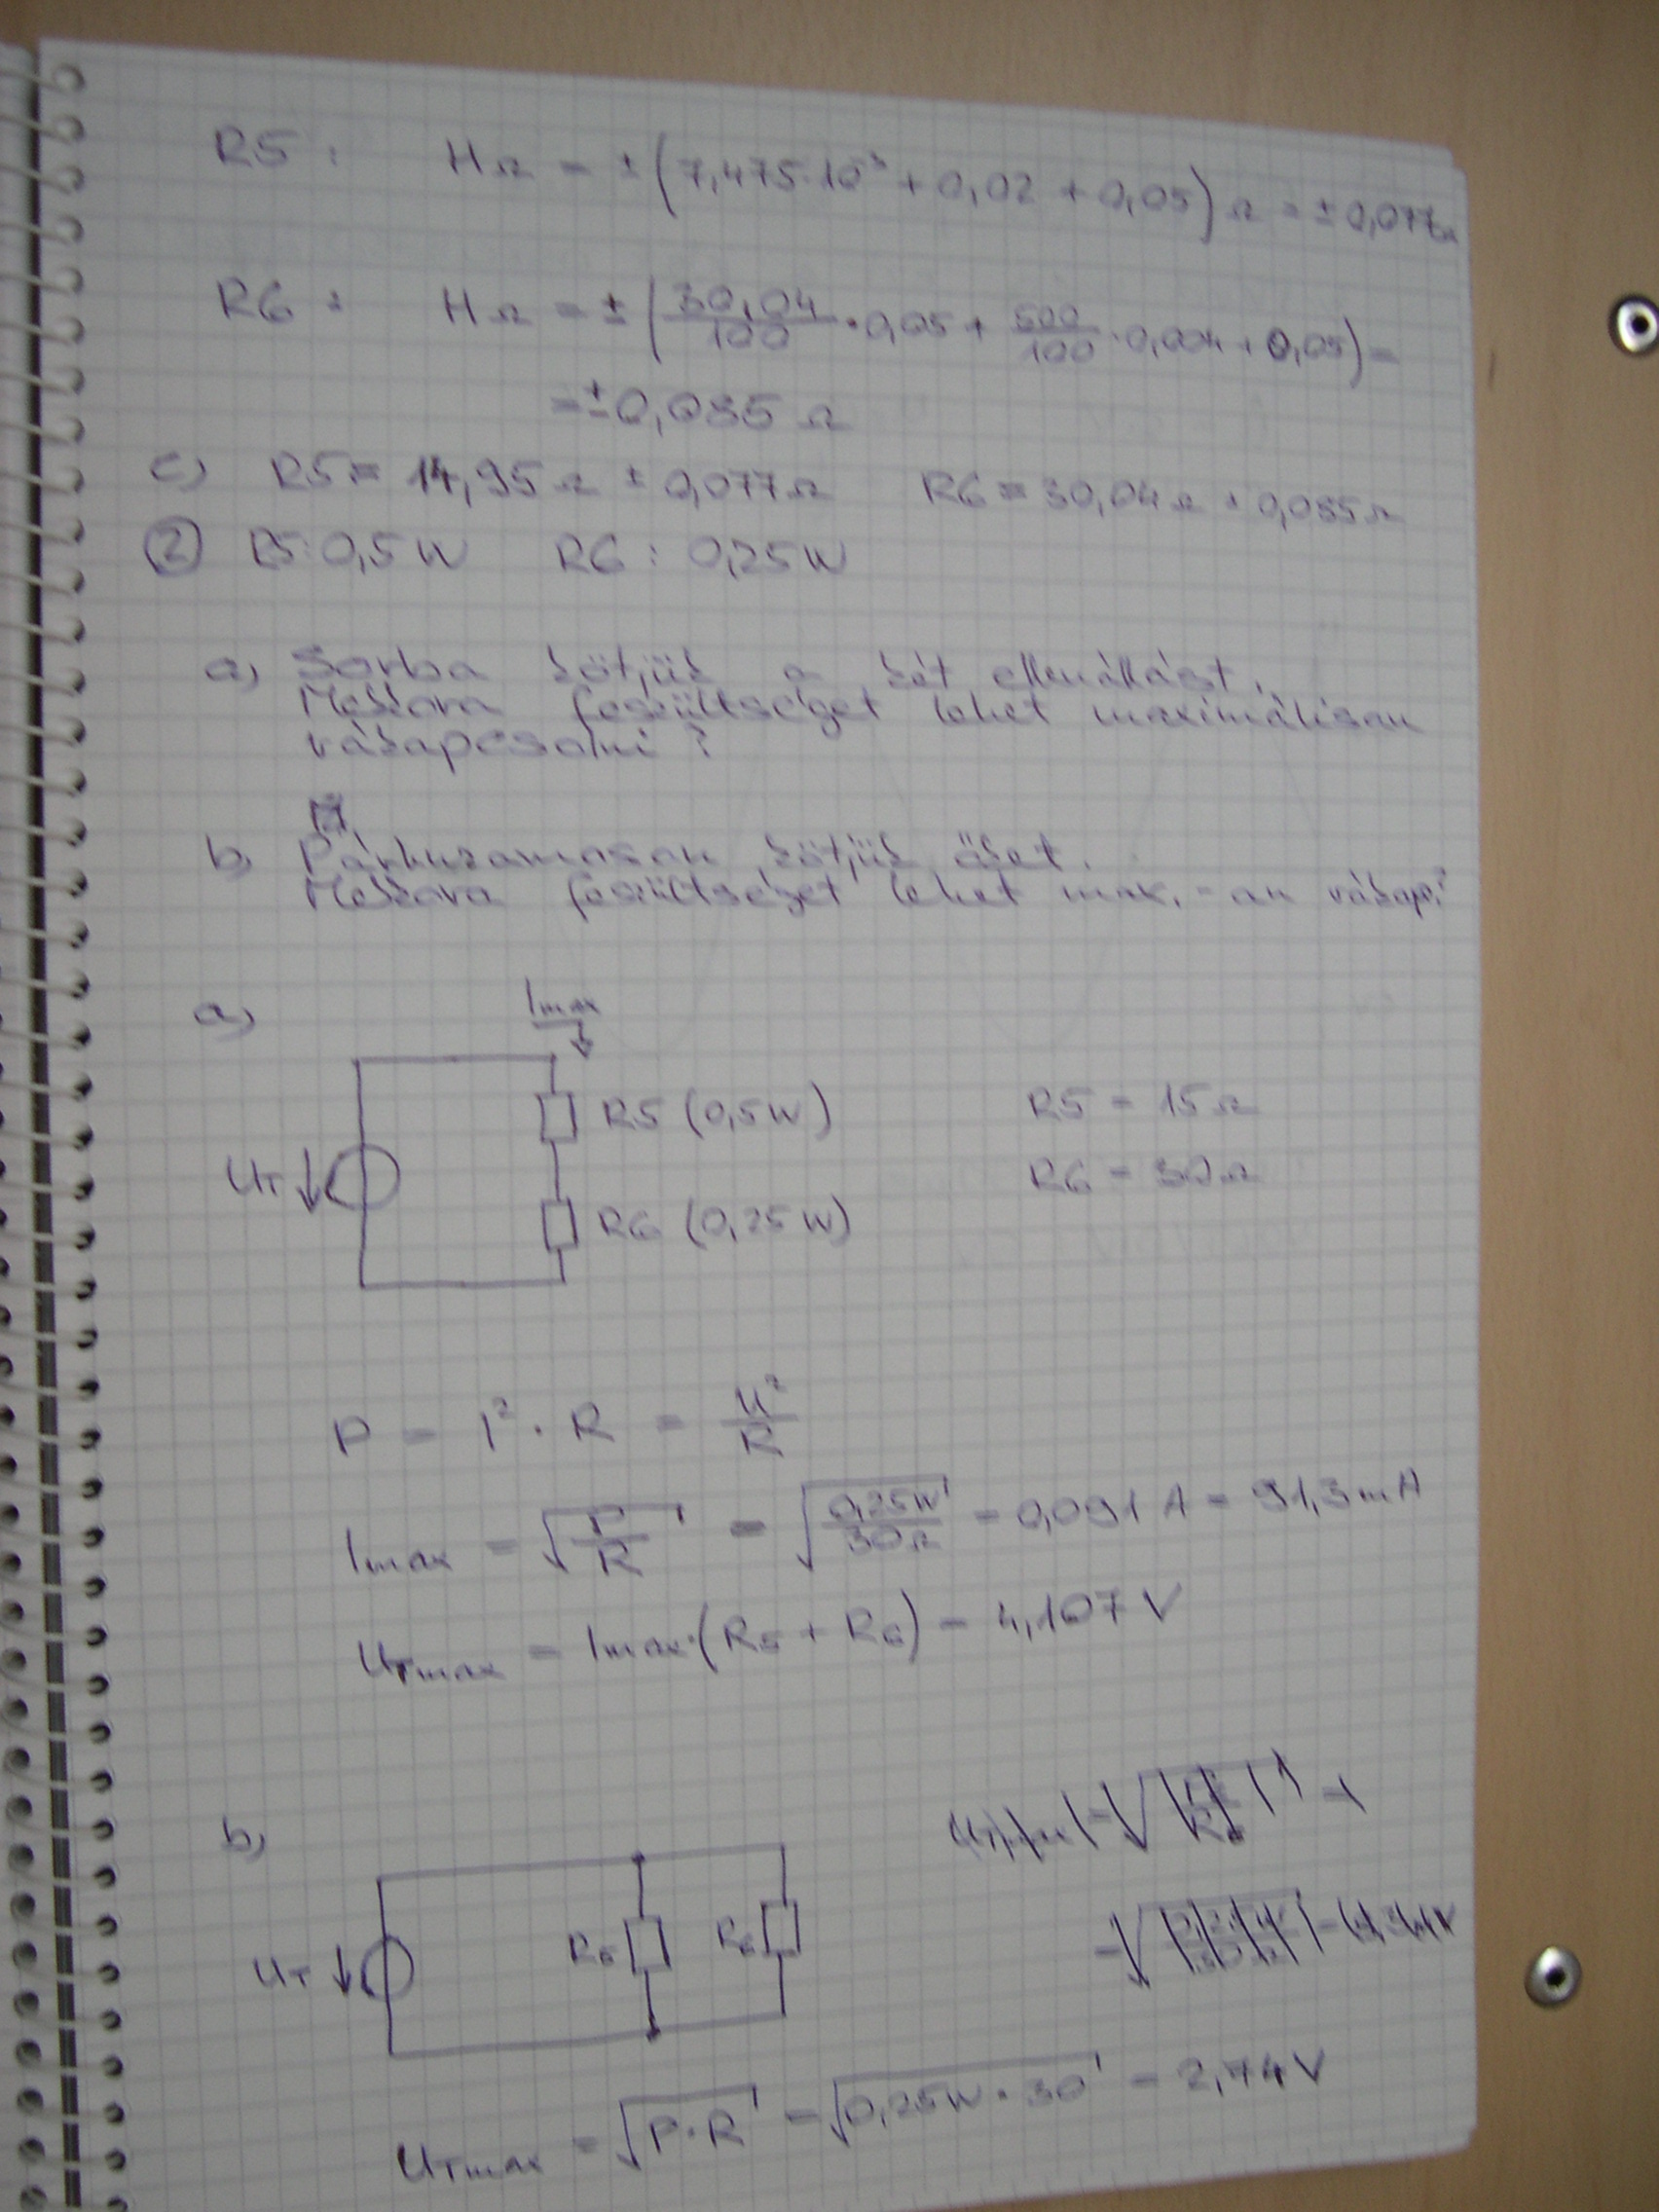 R5 : HΩ = ±(7,475·10⁻³ + 0,02 + 0,05)Ω = ±0,077Ω
R6 : HΩ = ±(30,04/100 · 0,05 + 500/100 · 0,004 + 0,05) =
= ±0,085 Ω
c) R5 = 14,95Ω ± 0,077Ω R6 = 30,04Ω ± 0,085Ω
② R5: 0,5W R6 : 0,25W
a) Sorba kötjük a két ellenállást.
Mekkora feszültséget lehet maximálisan
rákapcsolni?
b) Párhuzamosan kötjük őket.
Mekkora feszültséget lehet max.-an rákapc?
a) Imax
R5 (0,5W) R5 = 15Ω
UT R6 = 30Ω
R6 (0,25W)
P = I² · R = U²/R
Imax = √(P/R) = √(0,25W/30Ω) = 0,091 A = 91,3mA
UTmax = Imax·(R5 + R6) = 4,107 V
b)
UT R5 R6
UTmax = √(P·R) = √(0,25W · 30) = 2,74V